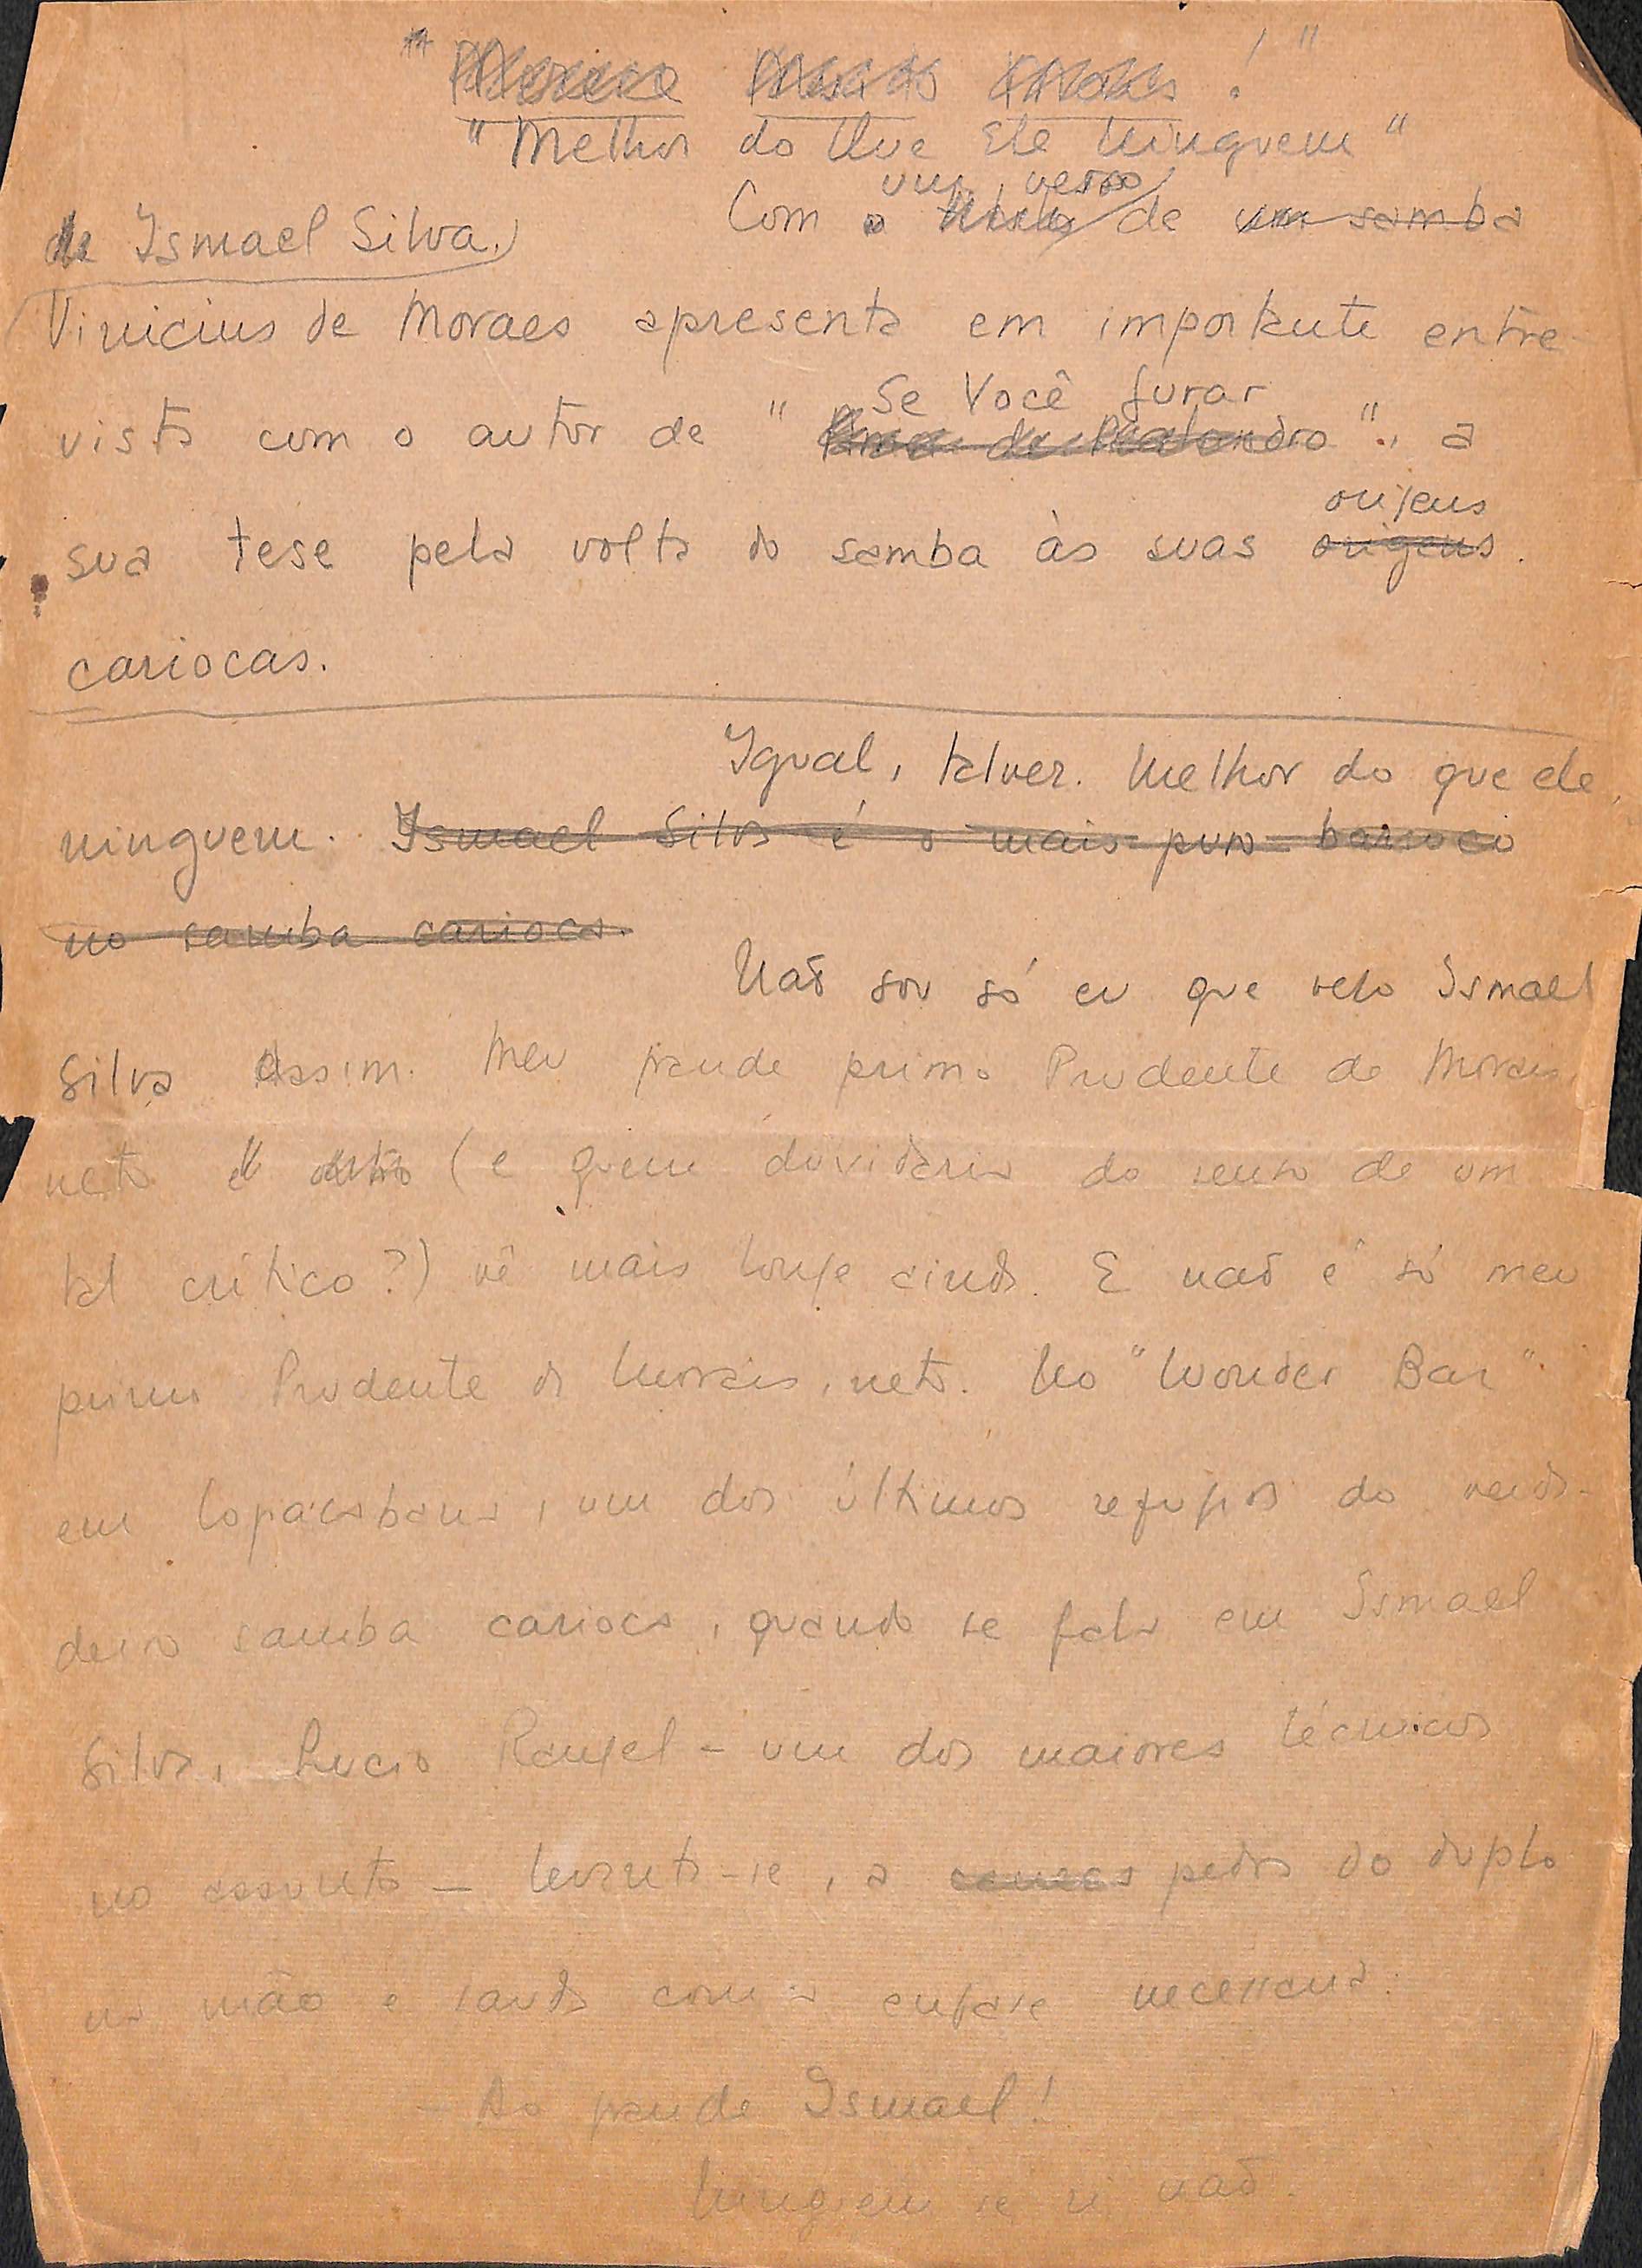 "Melhor do Que Ele Ninguem"
um verso
Com o titulo de um samba
de Ismael Silva,
Vinicius de Moraes apresenta em importante entre-
Se Você Jurar
vista com o autor de "Amor de Malandro", a
origens
sua tese pela volta do samba às suas origens
cariocas.
Igual, talvez. Melhor do que ele,
ninguem. Ismael Silva é o mais puro barroco
no samba carioca.
Não sou só eu que vejo Ismael
Silva assim. Meu grande primo Prudente de Morais,
neto (e quem duvidaria do senso de um
tal crítico?) vê mais longe ainda. E não é só meu
primo Prudente de Morais, neto. No "Wonder Bar"
em Copacabana, um dos últimos refugios do verda-
deiro samba carioca, quando se fala em Ismael
Silva, Lucio Rangel - um dos maiores técnicos
no assunto - levanta-se, a pedra do duplo
na mão e sauda com a enfase necessaria:
- Ao grande Ismael!
Ninguem se ri não.